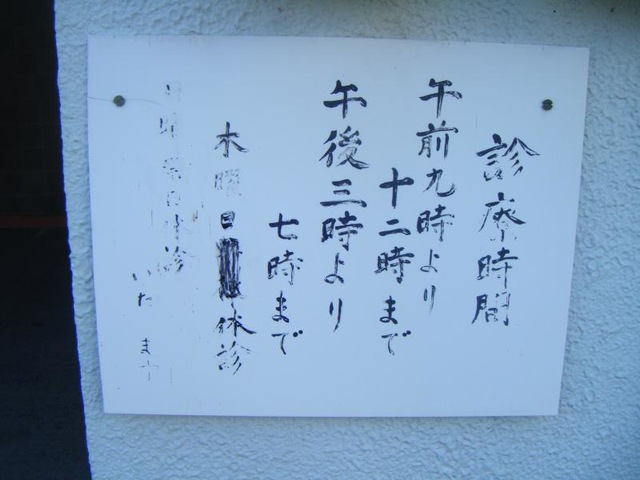 診療時間
午前九時より
十二時まで
午後三時より
七時まで
木曜日休診
日曜祭日休診
いたします